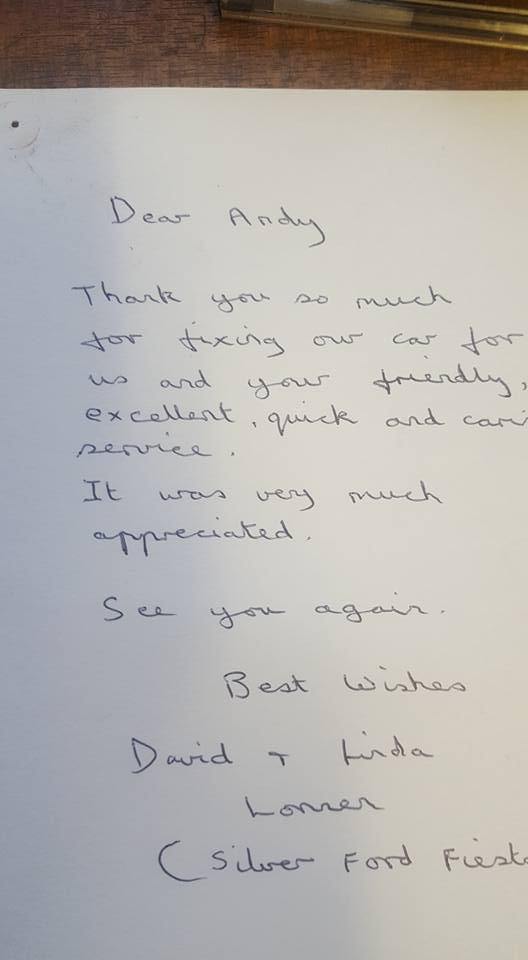 Dear Andy
Thank you so much
for fixing our car for
us and your friendly,
excellent, quick and cari
service.
It was very much
appreciated.
See you again.
Best Wishes
David + Linda
(Silver Ford Fiest